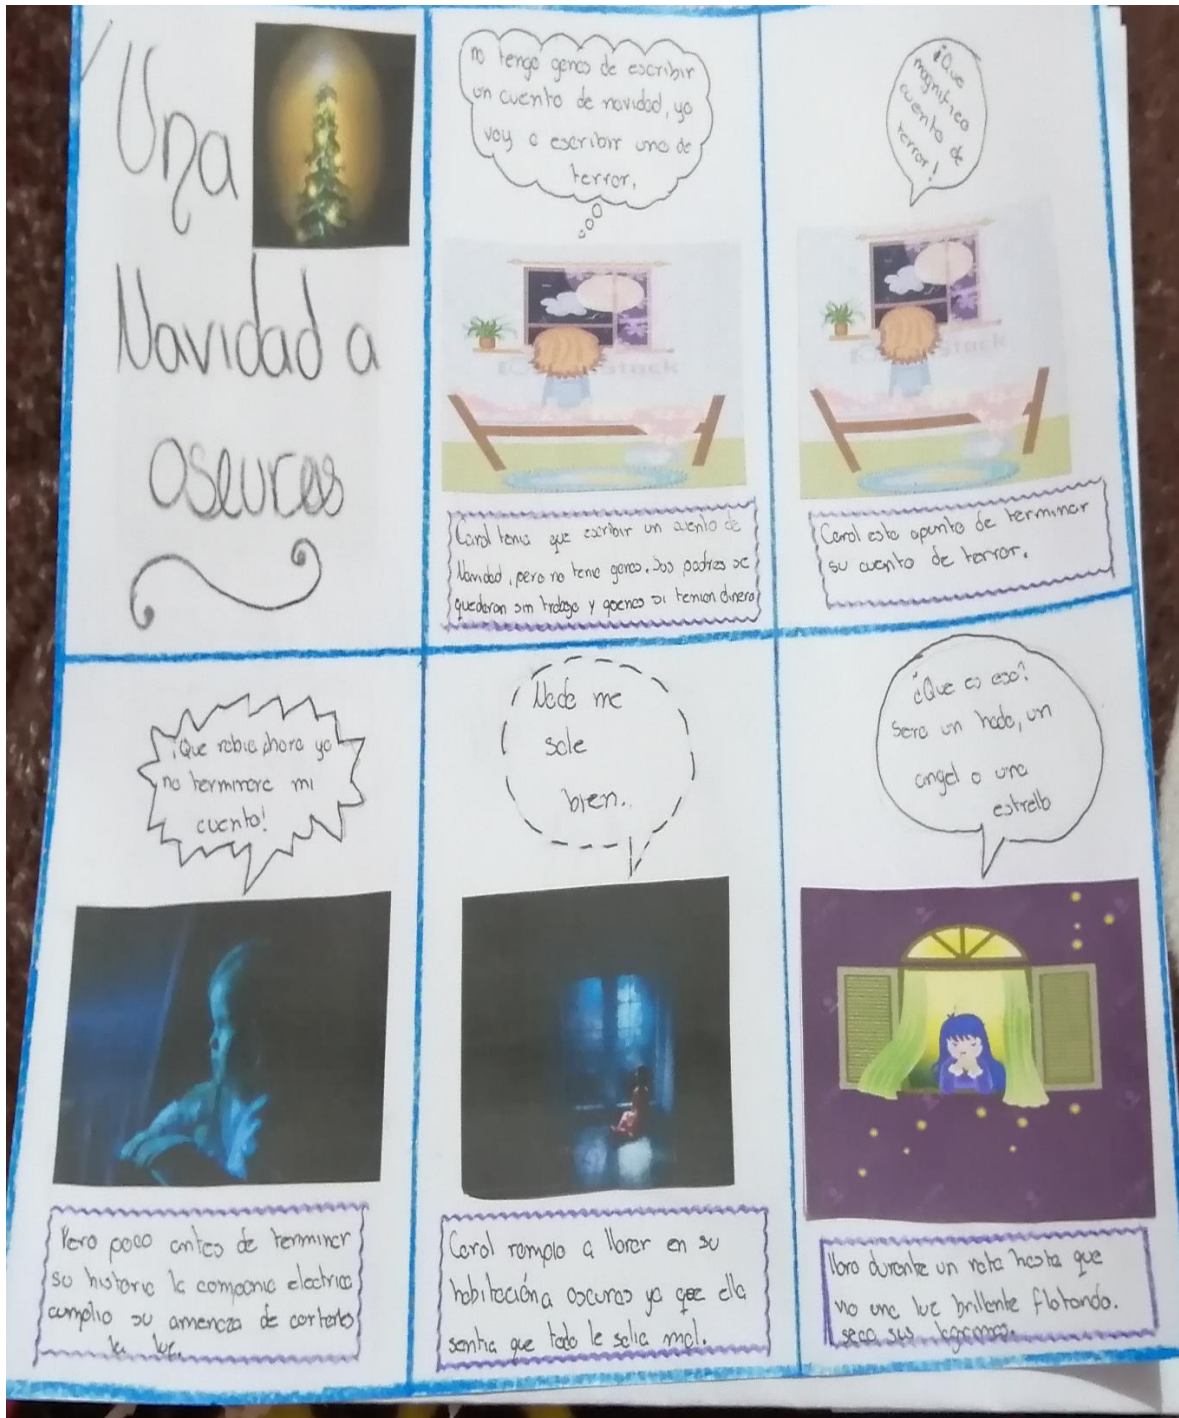 Una
Navidad a
oscuras
no tengo ganas de escribir
un cuento de navidad, yo
voy a escribir uno de
terror.
stock
Carol tenia que escribir un cuento de
Navidad, pero no tenia ganas. Sus padres se
quedaran sin trabajo y apenas si tenian dinero
¡Que
magnifico
cuento de
terror!
stock
Carol esta apunto de terminar
su cuento de terror.
¡Que rabia ahora ya
no terminare mi
cuento!
Pero poco antes de terminar
su historia la compania electrica
cumplio su amenaza de cortarles
la luz.
Nada me
sale
bien.
Carol rompio a llorar en su
habitación a oscuras ya que ella
sentia que todo le salia mal.
¿Que es eso?
sera un hada, un
angel o una
estrella
lloro durante un rato hasta que
vio una luz brillante flotando.
seco sus lagrimas.